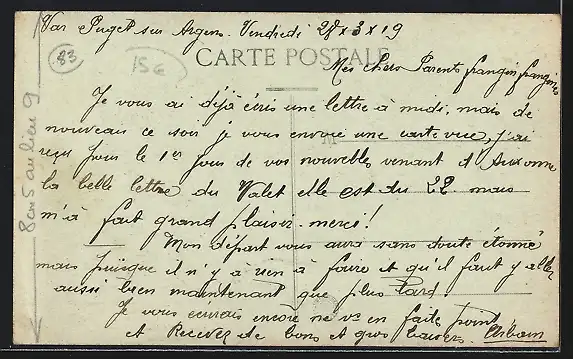 Var Puget sur Argens. Vendredi 28 x 3 x 19
83
15€
CARTE POSTALE
Mes Chers Parents frangin frangines
Je vous ai déjà écris une lettre à midi, mais de
nouveau ce soir je vous envoie une carte vue, j'ai
reçu pour le 1er jour de vos nouvelles venant d'Auxonne
la belle lettre du Valet elle est du 22. mais
m'à fait grand plaisir. merci!
Mon départ vous aura sans doute étonné
mais puisque il n'y a rien à faire et qu'il faut y aller
aussi bien maintenant que plus tard!
Je vous écrirais encore ne vs en faites point
et Recevez de bons et gros baisers. Urbain
8 cm 5 au lieu 9